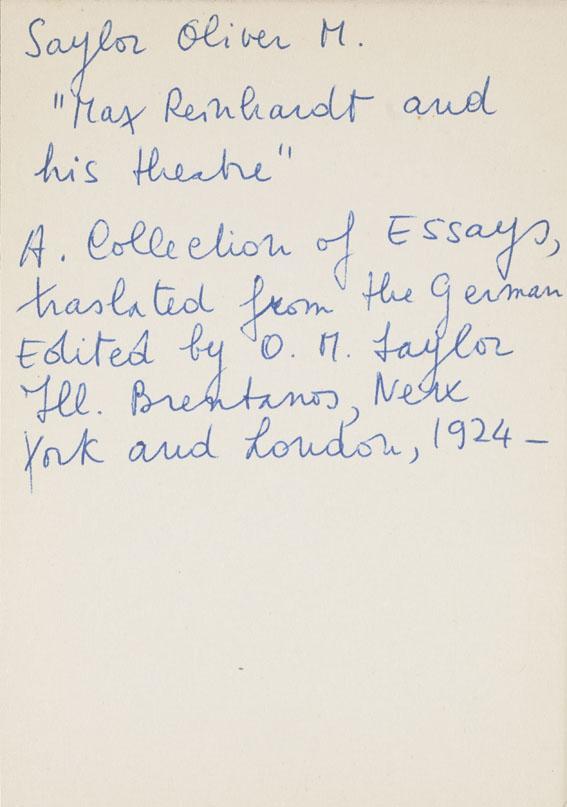 Saylor Oliver M.
"Max Reinhardt and
his theatre"
A. Collection of Essays,
traslated from the German
Edited by O. M. Saylor
Ill. Brentanos, New
York and London, 1924 –